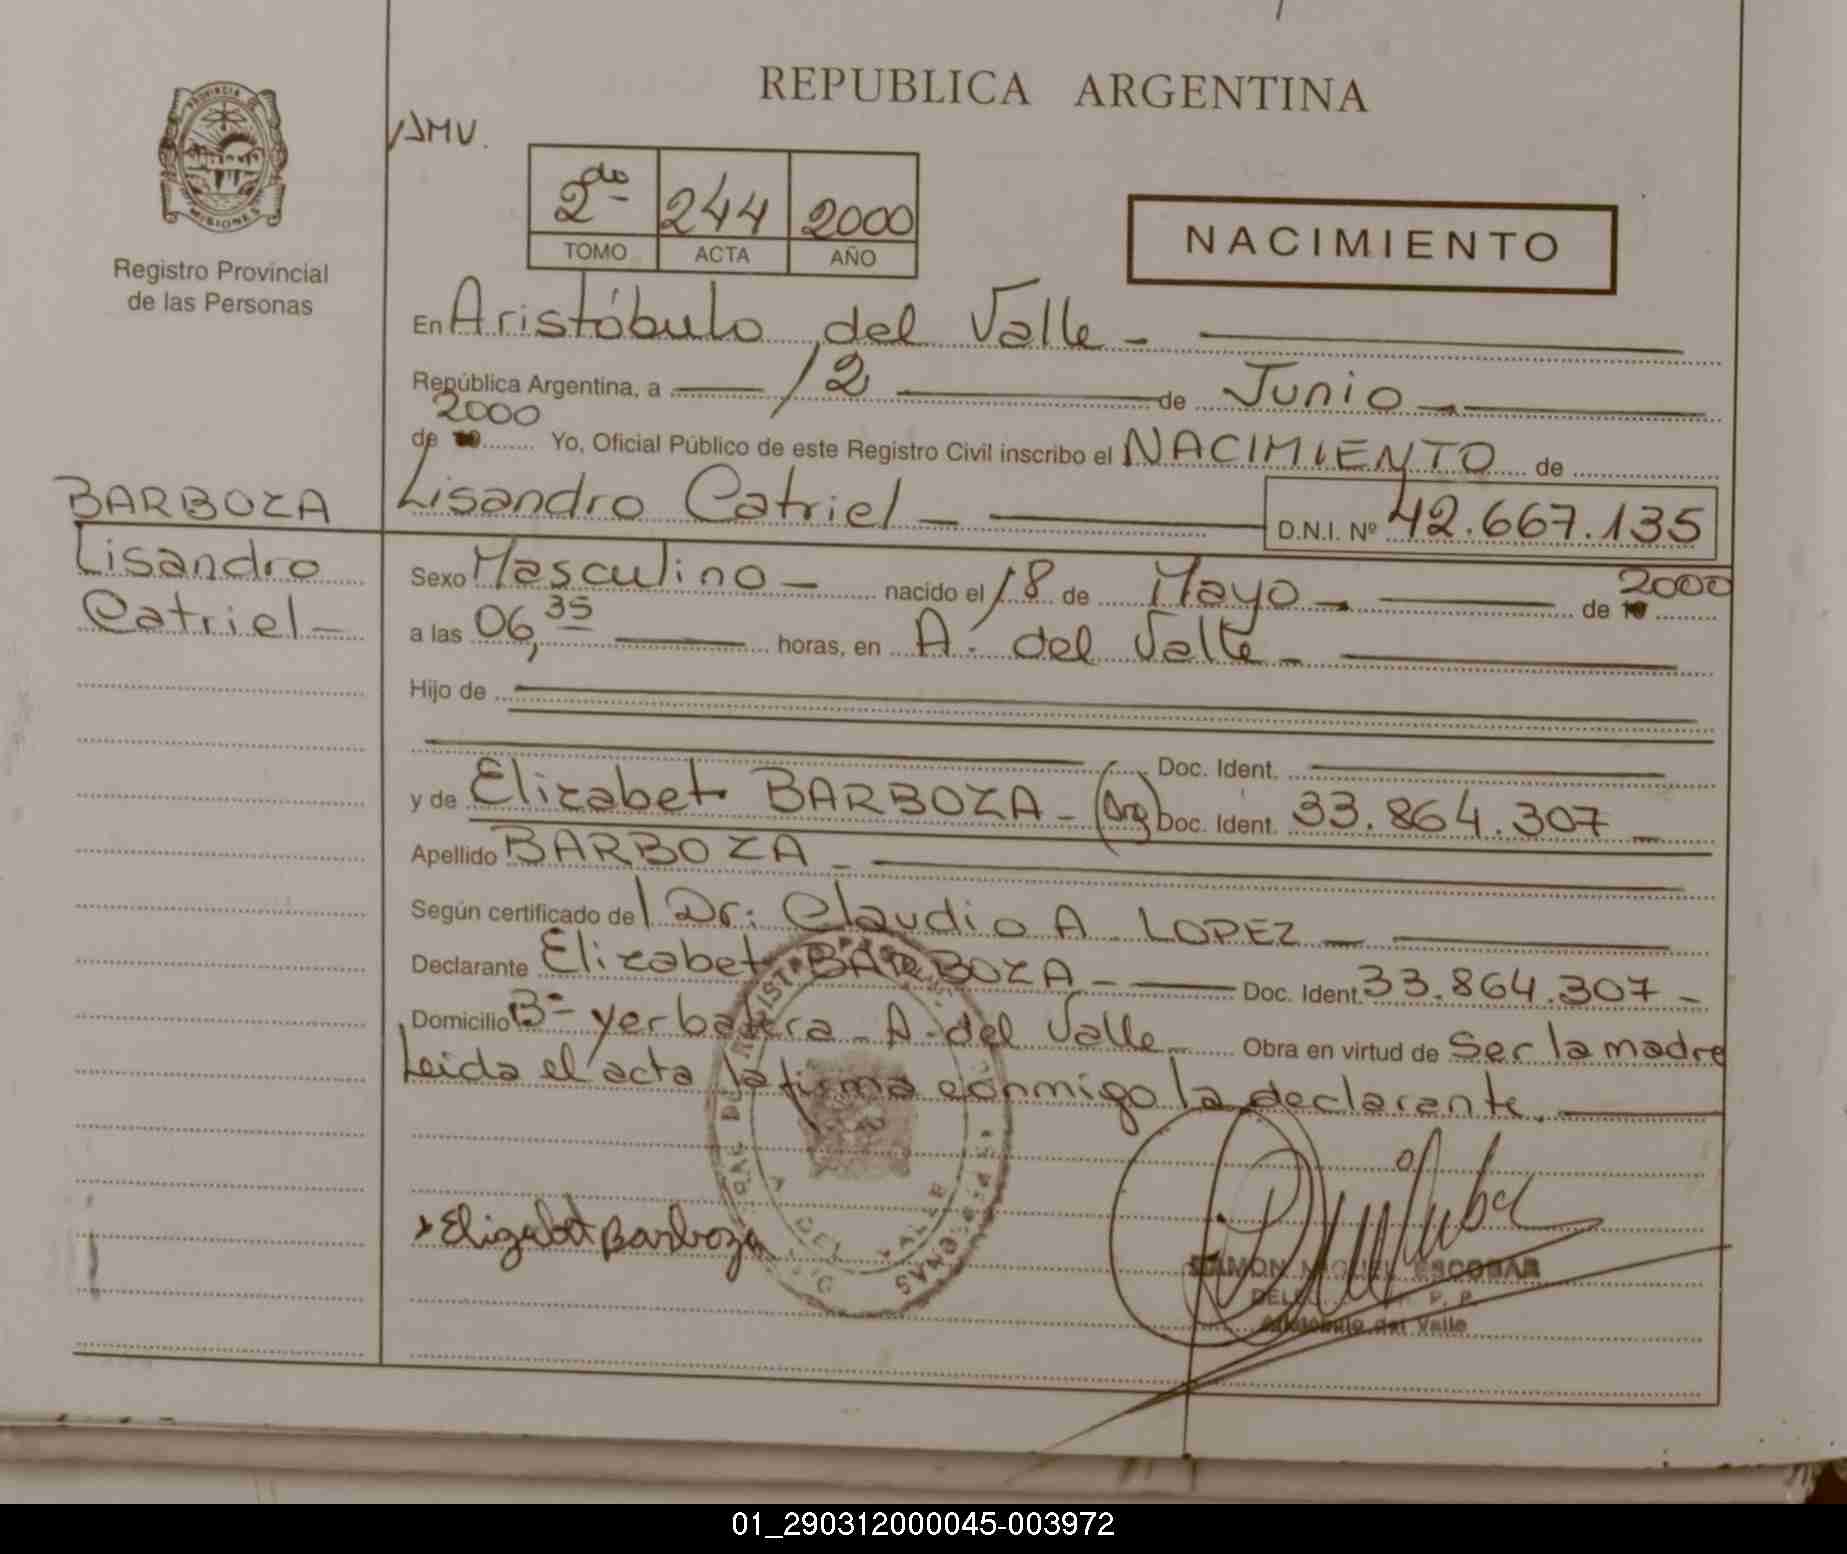 REPUBLICA ARGENTINA
PROVINCIA DE
MISIONES
Registro Provincial
de las Personas
AMV.
2do 244 2000
TOMO ACTA AÑO
NACIMIENTO
En Aristóbulo del Valle -
República Argentina, a 12 de Junio -
2000
de Yo, Oficial Público de este Registro Civil inscribo el NACIMIENTO de
BARBOZA
Lisandro Catriel - D.N.I. Nº 42.667.135
Lisandro
Catriel -
Sexo Masculino - nacido el 18 de Mayo - de 2000
a las 06,35 horas, en A. del Valle -
Hijo de
Doc. Ident.
y de Elizabet BARBOZA - (Arg) Doc. Ident. 33.864.307 -
Apellido BARBOZA -
Según certificado del Dr: Claudio A. LOPEZ -
Declarante Elizabet BARBOZA - Doc. Ident. 33.864.307 -
Domicilio Bº yerbatera - A. del Valle - Obra en virtud de Ser la madre
Leida el acta la firma conmigo la declarante.
A. DEL VALLE
Elizabet Barboza
RAMON MIGUEL ESCOBAR
Aristóbulo del Valle
01_290312000045-003972